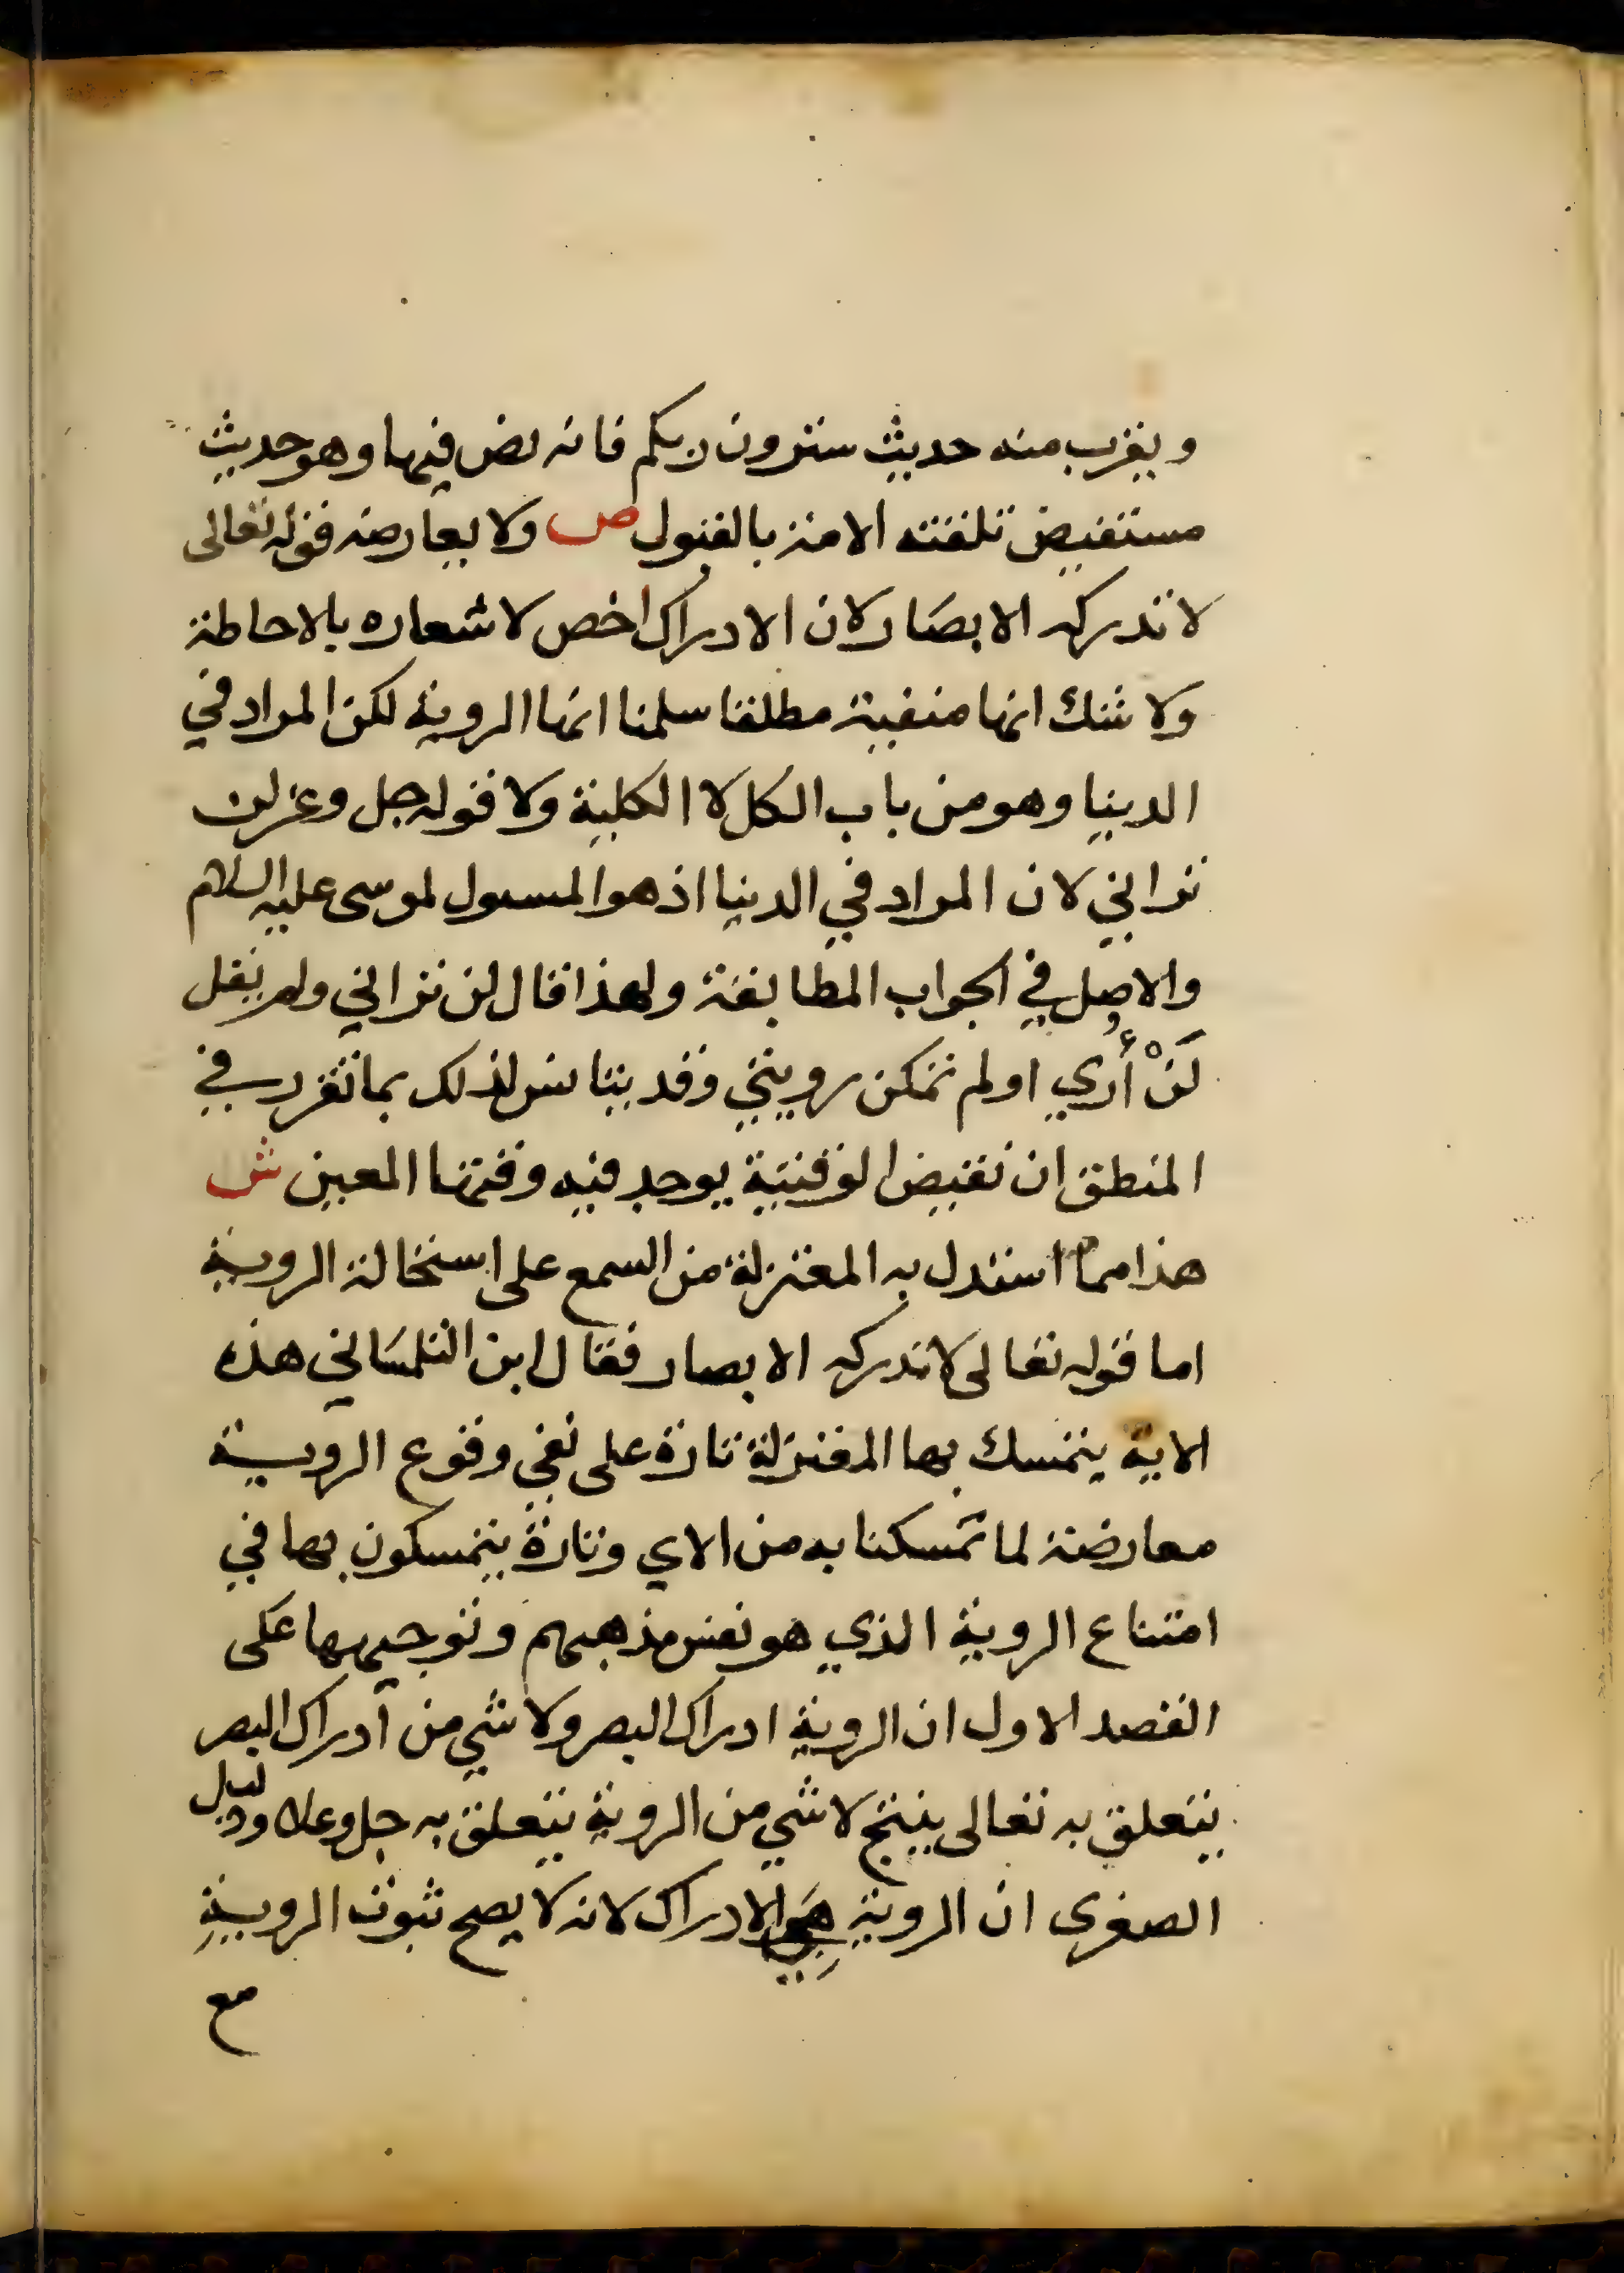 ويقرب منه حديث سترون ربكم فانه نص فيها وهو حديث
مستفيض تلقته الامة بالقبول ص ولا يعارضه قوله تعالى
لا تدركه الابصار لان الادراك اخص لاشعاره بالاحاطة
ولا شك انها منفية مطلقا سلمنا انها الروية لكن المراد في
الدنيا وهو من باب الكل لا الكلية ولا قوله جل وعز لن
تراني لان المراد في الدنيا اذ هو المسول لموسى عليه السلام
والاصل في الجواب المطابقة ولهذا قال لن تراني ولم يقل
لَنْ أُرَي او لم تمكن رويتي وقد لذلك بما تقرر في
المنطق ان نقيض الوقتية يوجد فيه وقتها المعين ش
هذا مما استدل به المعتزلة من السمع على استحالة الروية
اما قوله تعالى لا تدركه الابصار فقال ابن التلمساني هذه
الاية يتمسك بها المعتزلة تارة على نفي وقوع الروية
معارضة لما تمسكنا به من الاي وتارة يتمسكون بها في
امتناع الروية الذي هو نفس مذهبهم وتوجيهها على
القصد الاول ان الروية ادراك البصر ولا شي من ادراك البصر
يتعلق به تعالى ينتج لا شي من الروية يتعلق به جل وعلا ودليل
الصغرى ان الروية هي الادراك لانه لا يصح ثبوت الروية
مع